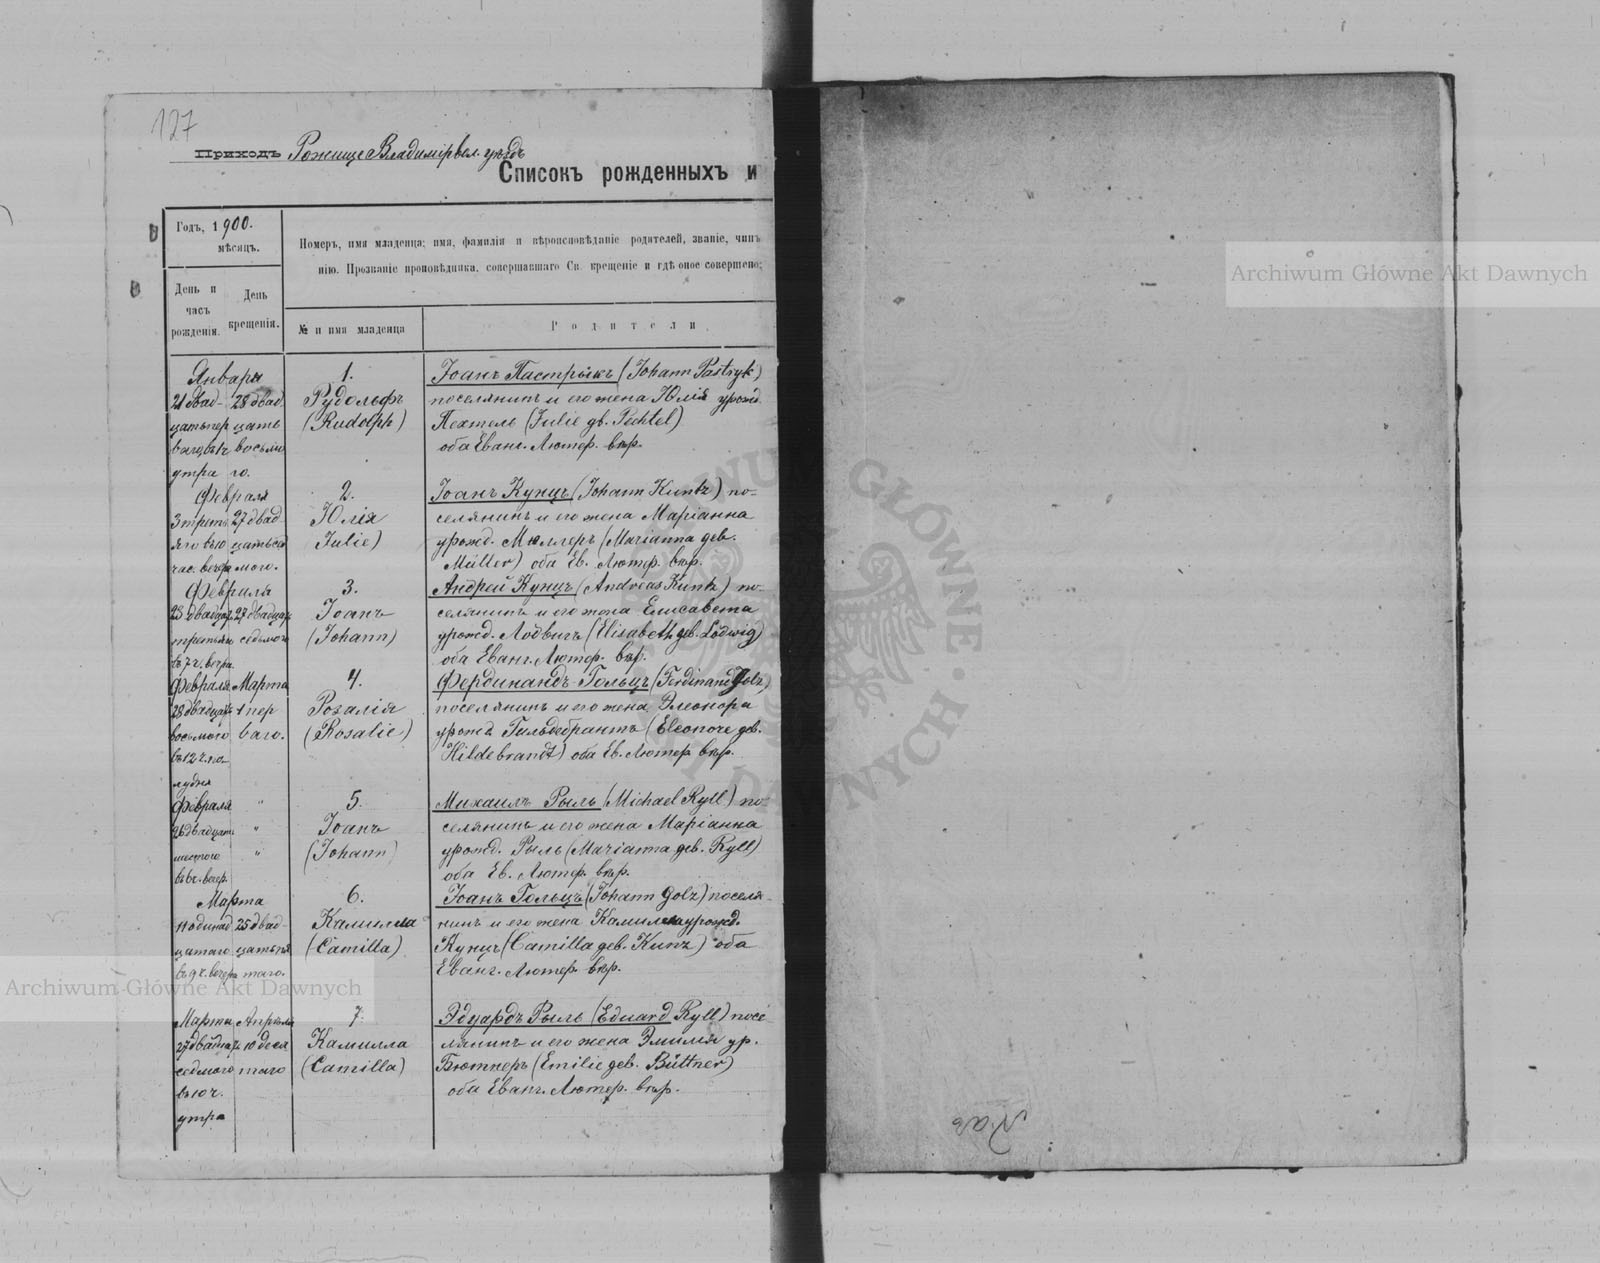 127
Приходъ Рожище Владимірвол. уѣздъ
Списокъ рожденныхъ и
Годъ, 1900.
мѣсяцъ.
Номеръ, имя младенца; имя, фамилія и вѣроисповѣданіе родителей, званіе, чинъ
нію. Прозваніе проповѣдника, совершавшаго Св. крещеніе и гдѣ оное совершено;
День и
часъ
рожденія.
День
крещенія.
№ и имя младенца
Родители
Января
21 двад-
цать пер
ваго, въ 12
утра
28 двад.
цать
восьмо
го.
1.
Рудольфъ
(Rudolph)
Іоанъ Пастрыкъ (Johann Pastryk)
поселянинъ и его жена Юлія урожд.
Пехтель (Julie gb. Pechtel)
оба Еванг. Лютер. вѣр.
Февраля
3 треть
яго въ 10
час. вечера
27 двад
цать сед
мого.
2.
Юлія
Julie)
Іоанъ Кунцъ (Johann Kuntz) по-
селянинъ и его жена Маріанна
урожд. Мюллеръ (Marianna geb.
Müller) оба Ев. Лютер. вѣр.
Февраля
23 двадцать
третьяго
въ 7 ч. вечера.
27 двадцать
седьмого
3.
Іоанъ
(Johann)
Андрей Кунцъ (Andreas Kuntz) по-
селянинъ и его жена Елисавета
урожд. Лодвигъ (Elisabeth geb. Lodwig)
оба Еванг. Лютер. вѣр.
Февраля
28 двадцать
восьмого
въ 12 ч. по
лудня
Марта
1 пер
ваго.
4.
Розалія
(Rosalie)
Фердинандъ Гольцъ (Ferdinand Golz)
поселянинъ и его жена Элеонора
урожд Гильдебрантъ (Eleonore geb.
Hildebrandt) оба Ев. Лютер. вѣр.
Февраля
26 двадцать
шестого
въ 6 ч. вечер.
"
"
"
5.
Іоанъ
(Johann)
Михаилъ Рыль (Michael Ryll) по-
селянинъ и его жена Маріанна
урожд. Рыль (Marianna geb. Ryll)
оба Ев. Лютер. вѣр.
Марта
11 одинад
цатаго
въ 9 ч. вечера
25 двад-
цать пя
таго.
6.
Камилла
(Camilla)
Іоанъ Гольцъ (Johann Golz) поселя-
нинъ и его жена Камилла урожд.
Кунцъ (Camilla geb. Kunz) оба
Еванг. Лютер. вѣр.
Марта
27 двадцать
седмого
въ 10 ч.
утра
Апрѣля
10 деся
таго
7.
Камилла
(Camilla)
Эдуардъ Рыль (Eduard Ryll) посе-
лянинъ и его жена Эмилія ур.
Бютнеръ (Emilie geb. Büttner)
оба Еванг. Лютер. вѣр.
Archiwum Główne Akt Dawnych
Archiwum Główne Akt Dawnych